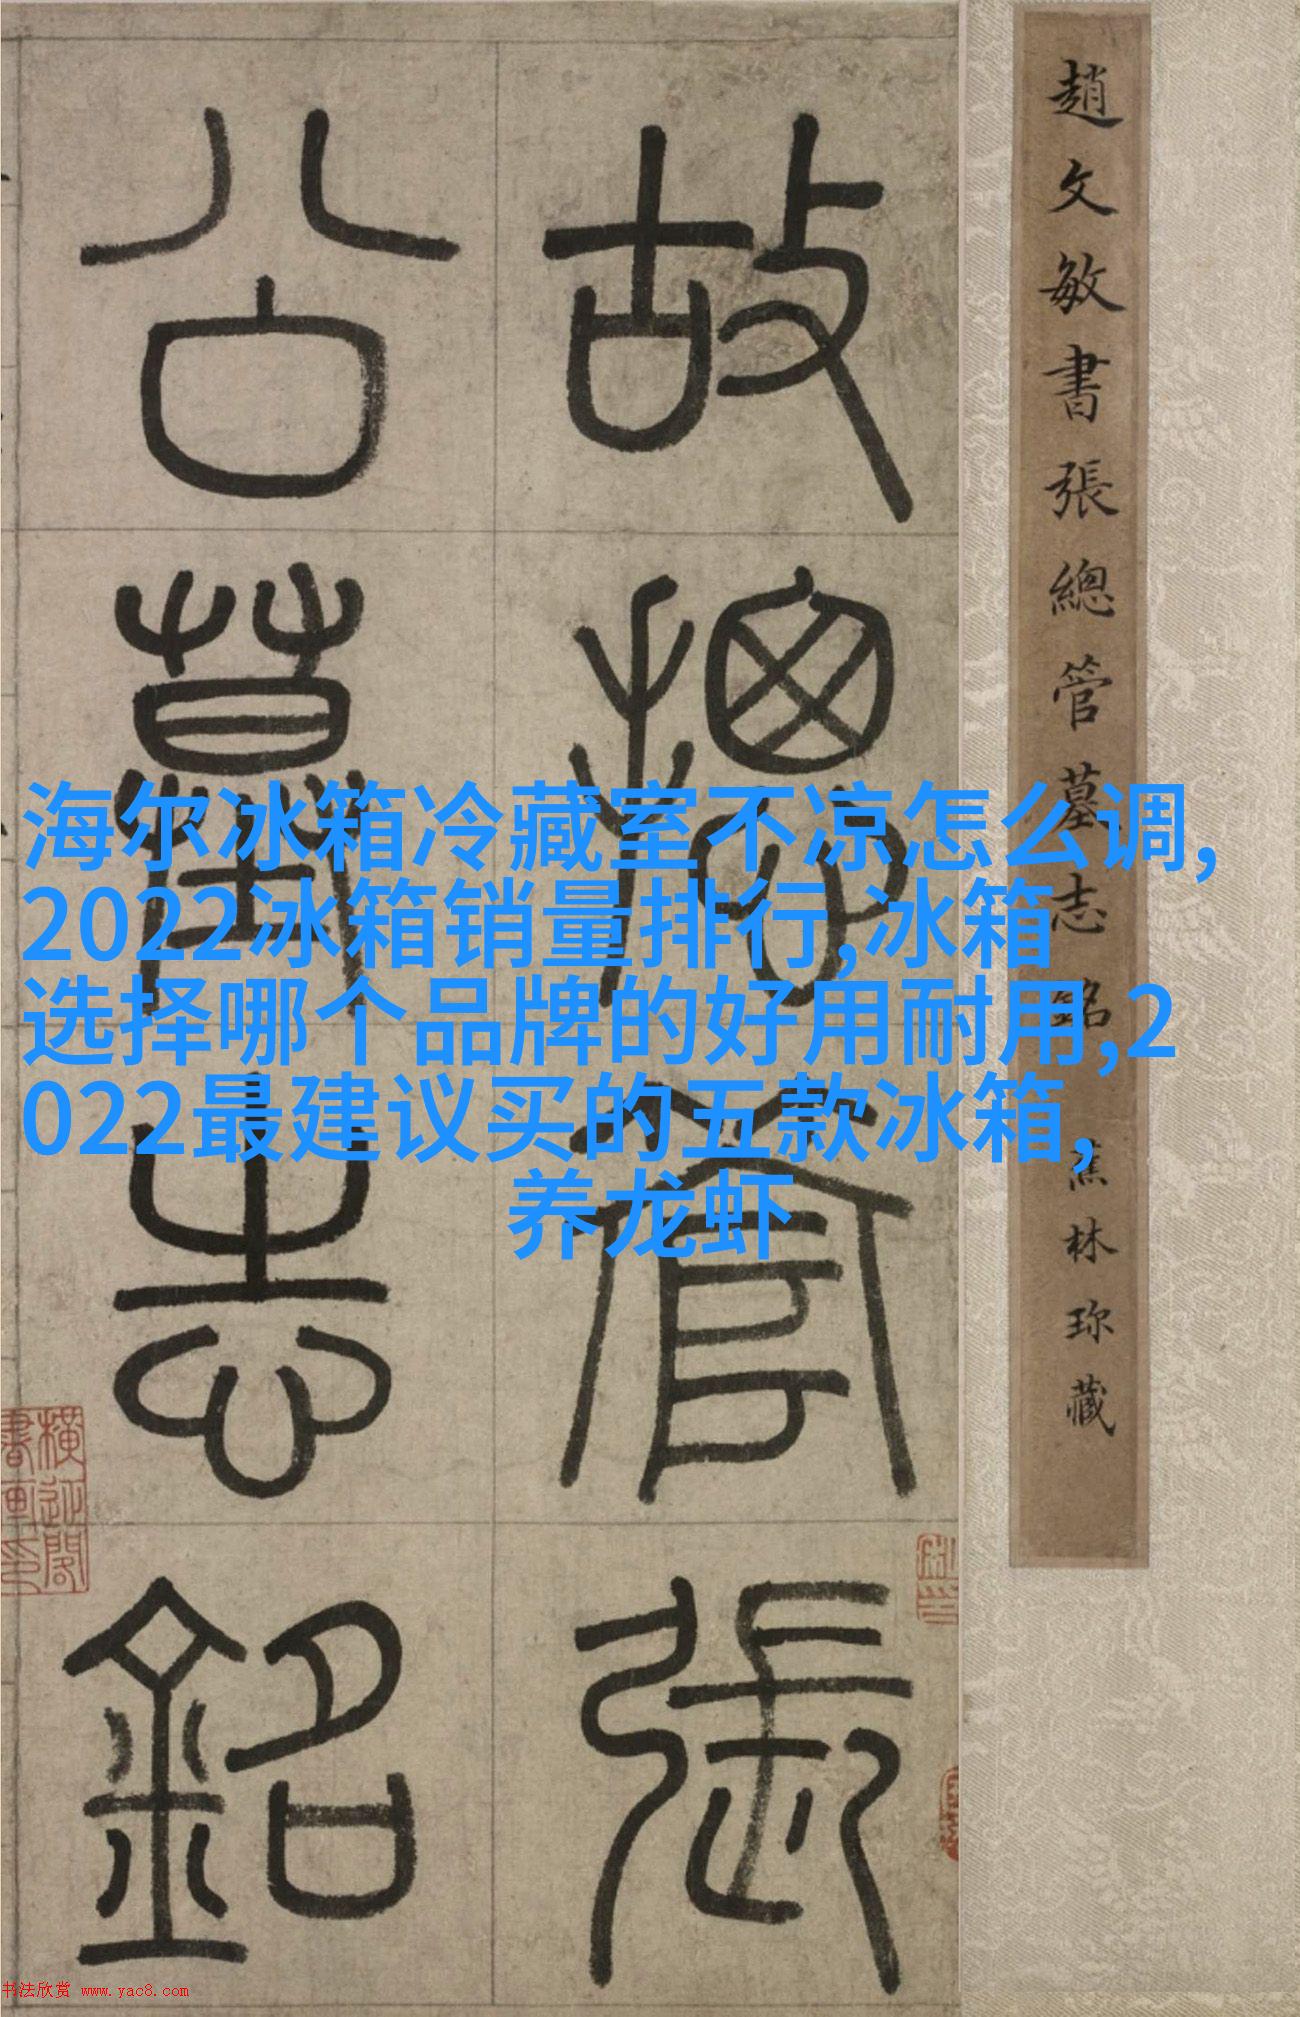 趙文敏書張總管墓志銘 蕉林珎藏
故摠管張
公墓志銘
海尔冰箱冷藏室不凉怎么调,
2022冰箱销量排行,冰箱
选择哪个品牌的好用耐用,2
022最建议买的五款冰箱,
养龙虾
书法欣赏 www.yac8.com